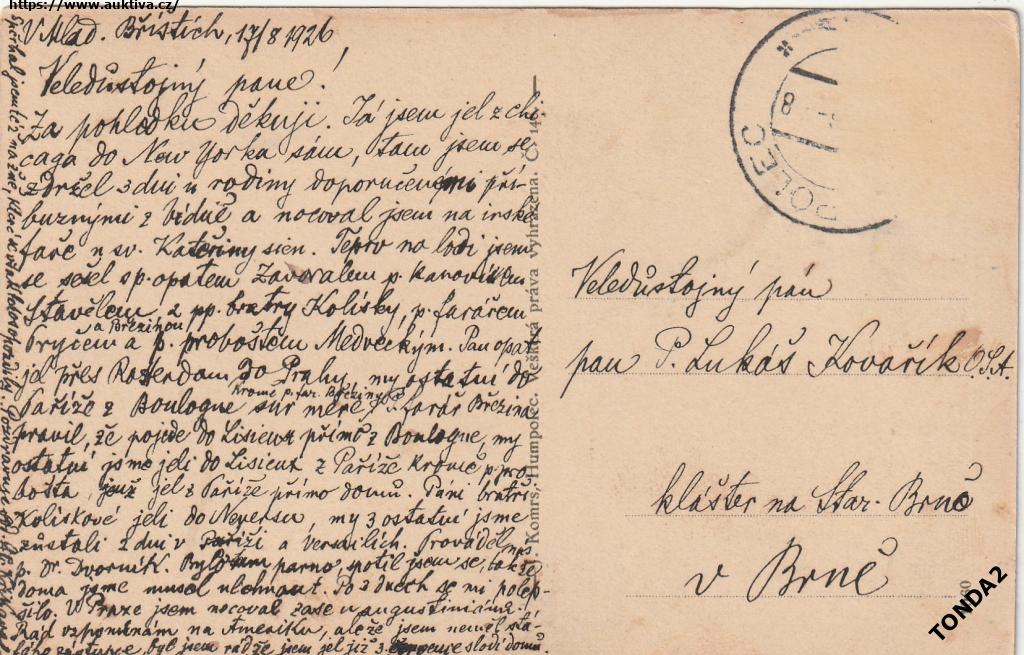 https://www.auktiva.cz/
V Mlad. Bříštích, 17/8 1926
Veledůstojný pane!
Za pohledku děkuji. Já jsem jel z chi-
caga do New Yorka sám, tam jsem se
zdržel 3 dni u rodiny doporučenými pří-
buznými z Vídně a nocoval jsem na irské
faře u sv. Kateřiny sien. Teprv na lodi jsem
se sešel s p. opatem Zavoralem p. kanovníkem
Stavělem, 2 pp. bratry Kolísky, p. farářem
a Březinou
Pryčem a p. proboštem Medveckým. Pan opat
jel přes Roterdam do Prahy, my ostatní do
Kromě p. far. Březiny
Paříže z Boulogne sur mére. P. farář Březina
pravil, že pojede do Lisieux přímo z Boulogne, my
ostatní jsme jeli do Lisieux z Paříže kromě p. pro-
bošta, jenž jel z Paříže přímo domů. Páni bratři
Kolískové jeli do Neversu, my 3 ostatní jsme
zůstali 2 dni v Paříži a Versailích. Prováděl nás
p. Dr. Dvorník. Bylo tam parno, spotil jsem se, takže
doma jsme musel ulehnout. Po 3 dnech se mi polep-
šilo. V Praze jsem nocoval zase u augustiniánů.
Rád vzpomínám na Ameriku, ale že jsem neměl stá-
lého zástupce, byl jsem rád že jsem jel již 3. července s lodí domů.
Spěchal jsem též na žně, které však
Pozdravuje
J. Komrs, Humpolec. Veškerá práva vyhražena. Č. 140
POLEC
8
Veledůstojný pán
pan P. Lukáš Kovařík O.S.A.
klášter na Star. Brně
v Brně
TONDA2